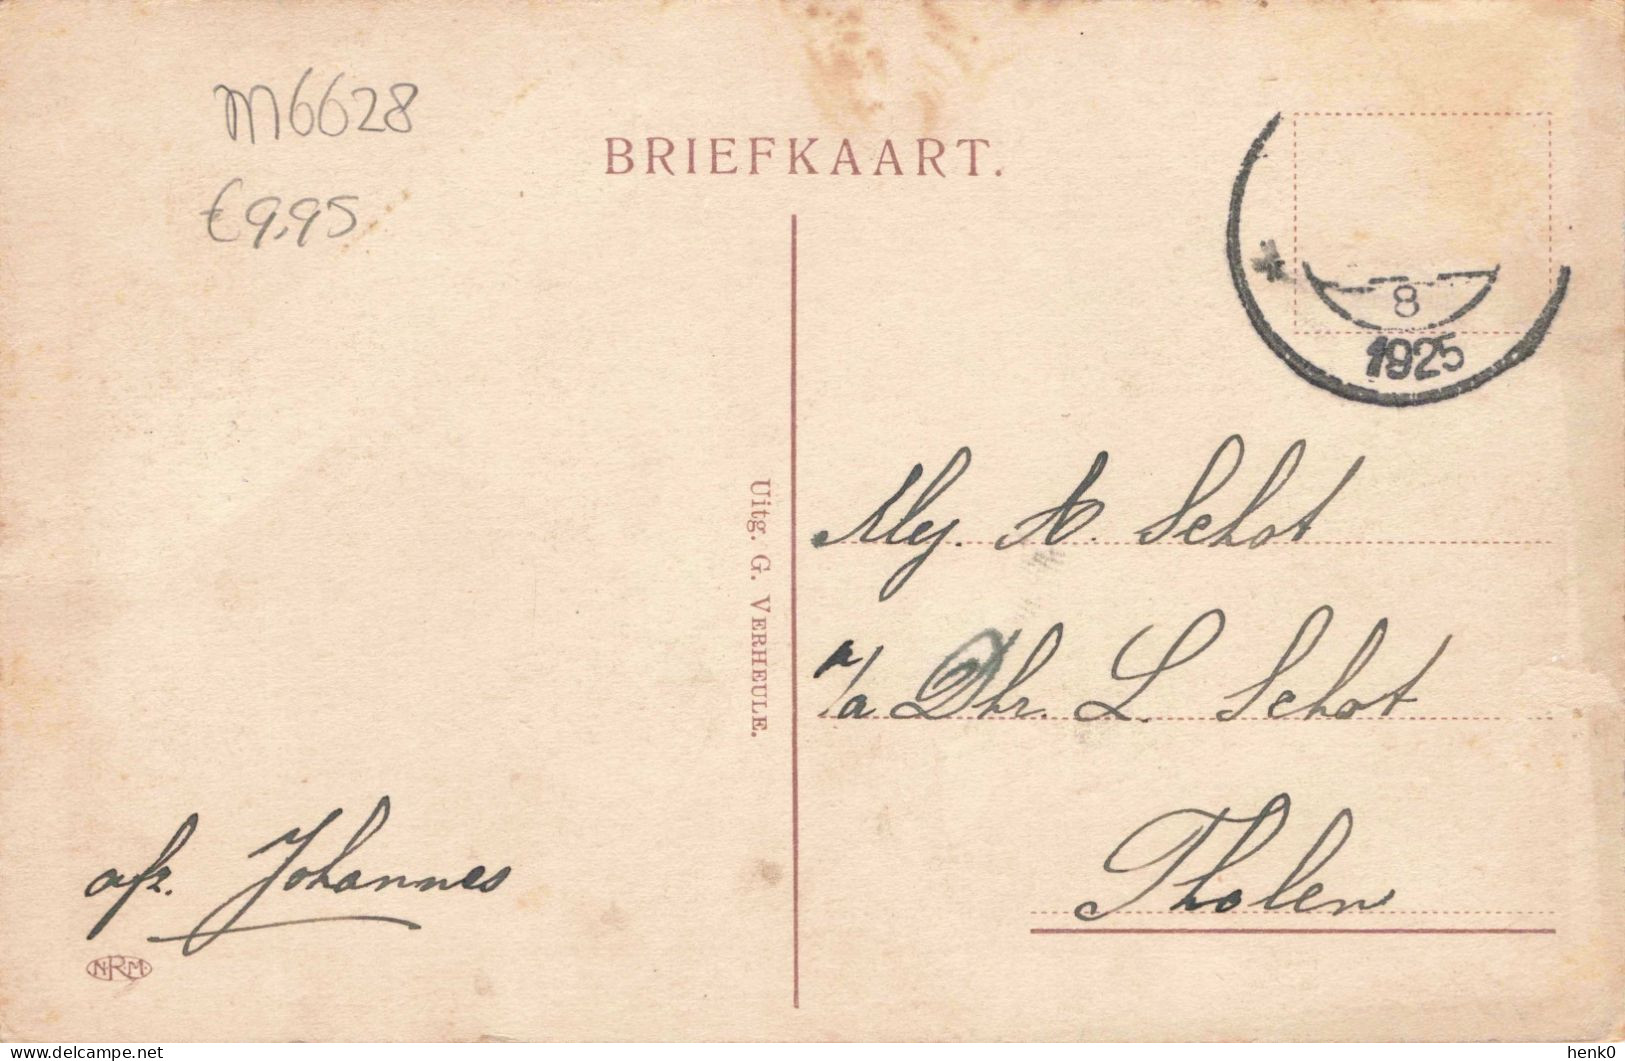 M6628
€9,95
BRIEFKAART.
8
1925
Uitg. G. VERHEULE.
Mej. A. Schot
a/a Dhr. L. Schot
Tholen
afz. Johannes
NRM
delcampe.net
henk0